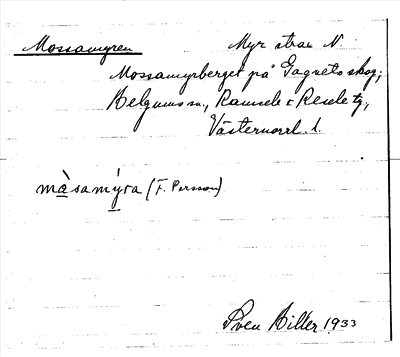 Mossamyren Myr strax N.
Mossamyrberget på Gagnets skog;
Helgums sn., Ramsele & Resele tg,
Västernorrl. l.
måsamýra (F. Persson)
Sven Hiller 1933